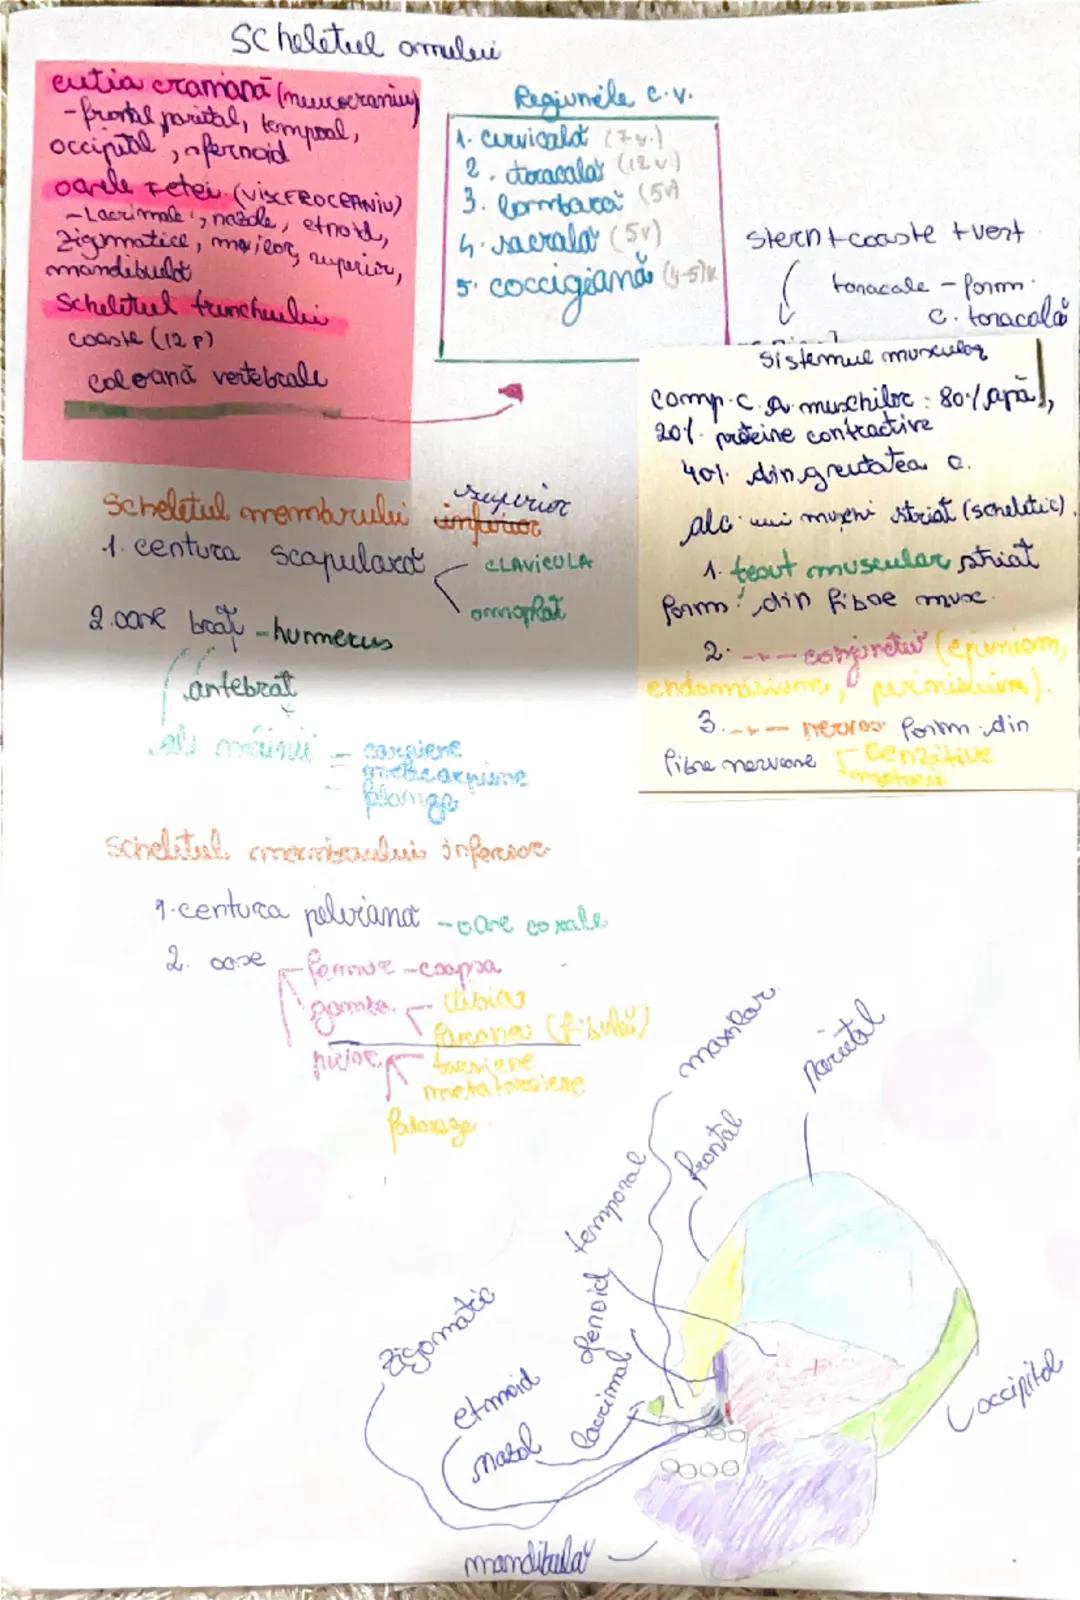 Scheletul omului
cutia craniană (neurocraniu)
- frontal parietal, temporal,
occipital, sfernoid
oasele fetei (VISCEROCRANIU)
- Lacrimale, nazale, etnoid,
Zigomatice, maxilar superior,
mandibulă
Scheletul trunchiului
coaste (12 p)
coloană vertebrale
Regiunele c.v.
1. cervicală (7 v.)
2. toracală (12 v)
3. lombară (5v)
4. sacrala (5v)
5. coccigiană (4-5)v.
stern + coaste + vert
toracale - form.
c. toracală
Sistemul muscular
comp. c. A muschilor: 80% apă,
20% proteine contractive
40% din greutatea c.
alc. unui muschi striat (scheletic)
1. tesut muscular striat
form. din fibre musc.
2. -"- conjunctiv (epimisium,
endomisium, perimisium).
3. -"- nervos form. din
fibre nervoase senzitive
motorii
Scheletul membrului inferior superior
1. centura scapulară CLAVICULA
omoplat
2. oase braț - humerus
antebraț
ale mâinii - carpiene
metacarpiene
falange
Scheletul membrului inferior
1. centura pelviana - oase coxale
2. oase femur - coapsa
gamba tibia
peronei (fibulă)
picior tarsiene
metatarsiene
falange
maxilar
parietal
frontal
temporal
sfenoid
lacrimal
zigomatic
etmoid
nazal
occipital
mandibulă